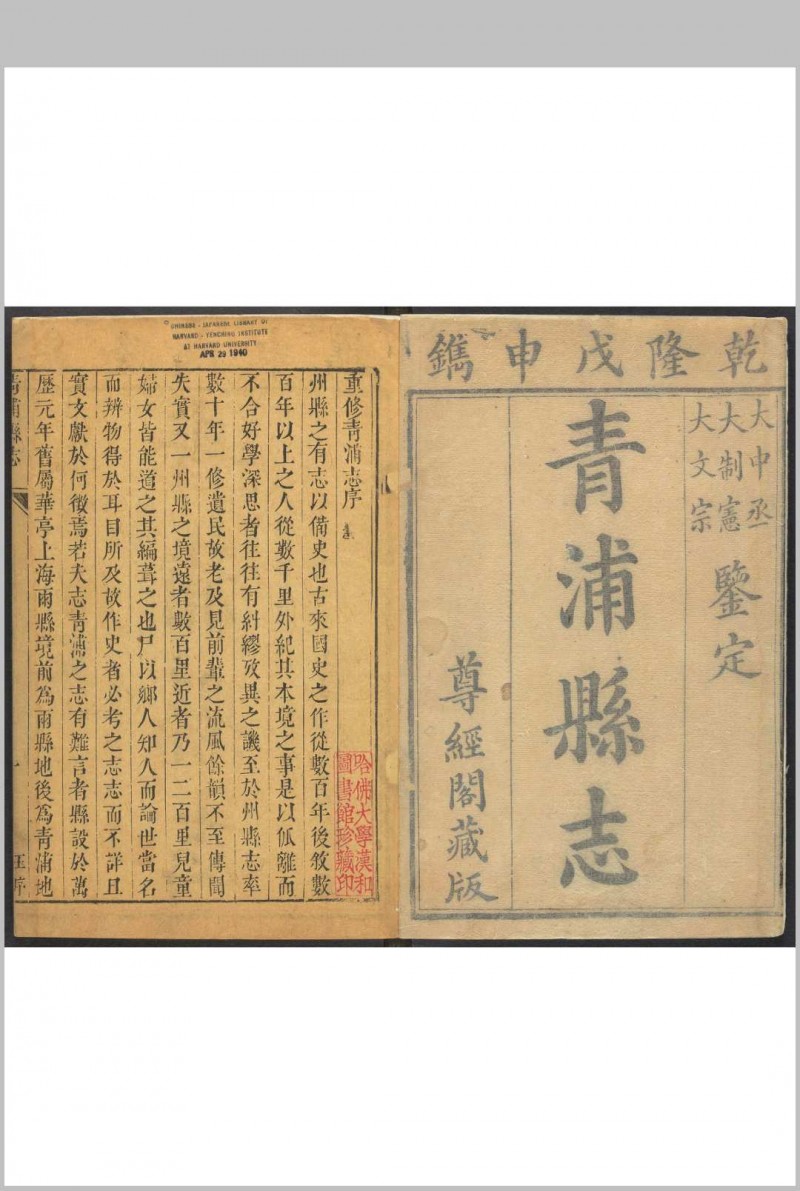 乾隆戊申鐫
大中丞
大制憲
大文宗
鑒定
青浦縣志
尊經閣藏版
CHINESE - JAPANESE LIBRARY OF
HARVARD - YENCHING INSTITUTE
AT HARVARD UNIVERSITY
APR 29 1940
重修青浦志序
哈佛大學漢和
圖書館珍藏印
州縣之有志以備史也古來國史之作從數百年後敘數
百年以上之人從數千里外紀其本境之事是以㼌離而
不合好學深思者往往有糾繆攷異之譏至於州縣志率
數十年一修遺民故老及見前輩之流風餘韻不至傳聞
失實又一州縣之境遠者數百里近者乃一二百里兒童
婦女皆能道之其編葺之也尸以鄉人知人而論世當名
而辨物得於耳目所及故作史者必考之志志而不詳且
實文獻於何徵焉若夫志青浦之志有難言者縣設於萬
歷元年舊屬華亭上海兩縣境前為兩縣地後為青浦地
青浦縣志
一
汪序